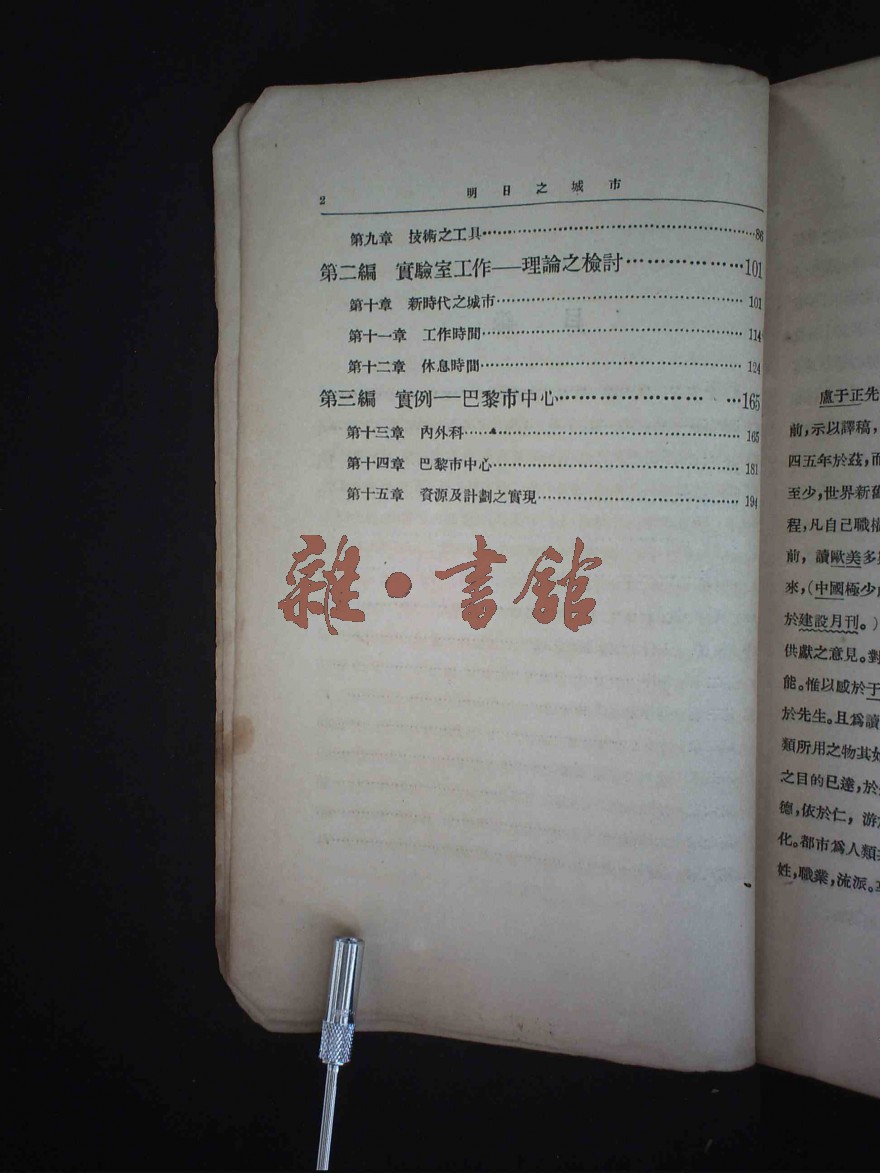 2
明日之城市
第九章 技術之工具……86
第二編 實驗室工作——理論之檢討……101
第十章 新時代之城市……101
第十一章 工作時間……114
第十二章 休息時間……124
第三編 實例——巴黎市中心……165
第十三章 內外科……165
第十四章 巴黎市中心……181
第十五章 資源及計劃之實現……194
雜·書館
盧于正先
前,示以譯稿,
四五年於茲,而
至少,世界新舊
程,凡自己職
前,讀歐美多
來,(中國極少
於建設月刊。)
供獻之意見。對
能。惟以感於于
於先生。且爲讀
類所用之物其
之目的已達,於
德,依於仁,游
化。都市爲人類
姓,職業,流派。